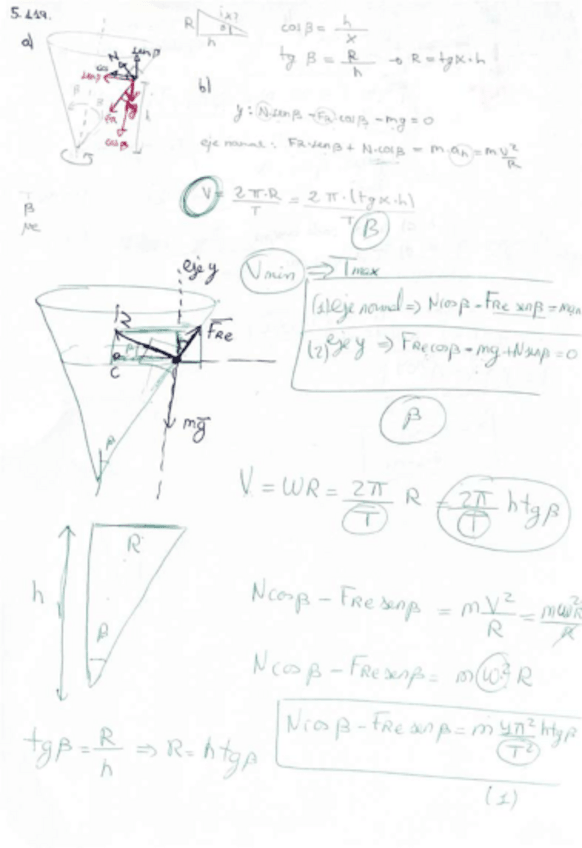 5.119.
a)
R
h
x
cos β = h/x
tg β = R/h → R = tgα·h
b)
y: N·senβ - FR·cosβ - mg = 0
eje normal: FR·senβ + N·cosβ = m·an = m V²/R
V = 2π·R/T = 2π·(tgα·h)/T
B
β
μe
Vmin ⇒ Tmax
eje y
(1) eje normal ⇒ Ncosβ - FRe senβ = man
(2) eje y ⇒ FRe cosβ - mg + Nsenβ = 0
N
FRe
C
mg
β
β
V = ωR = 2π/T R = 2π/T h tgβ
R
h
β
Ncosβ - FRe senβ = m V²/R = mω²R²/R
Ncosβ - FRe senβ = m ω² R
Ncosβ - FRe senβ = m 4π²/T² h tgβ
(1)
tgβ = R/h ⇒ R = h tgβ